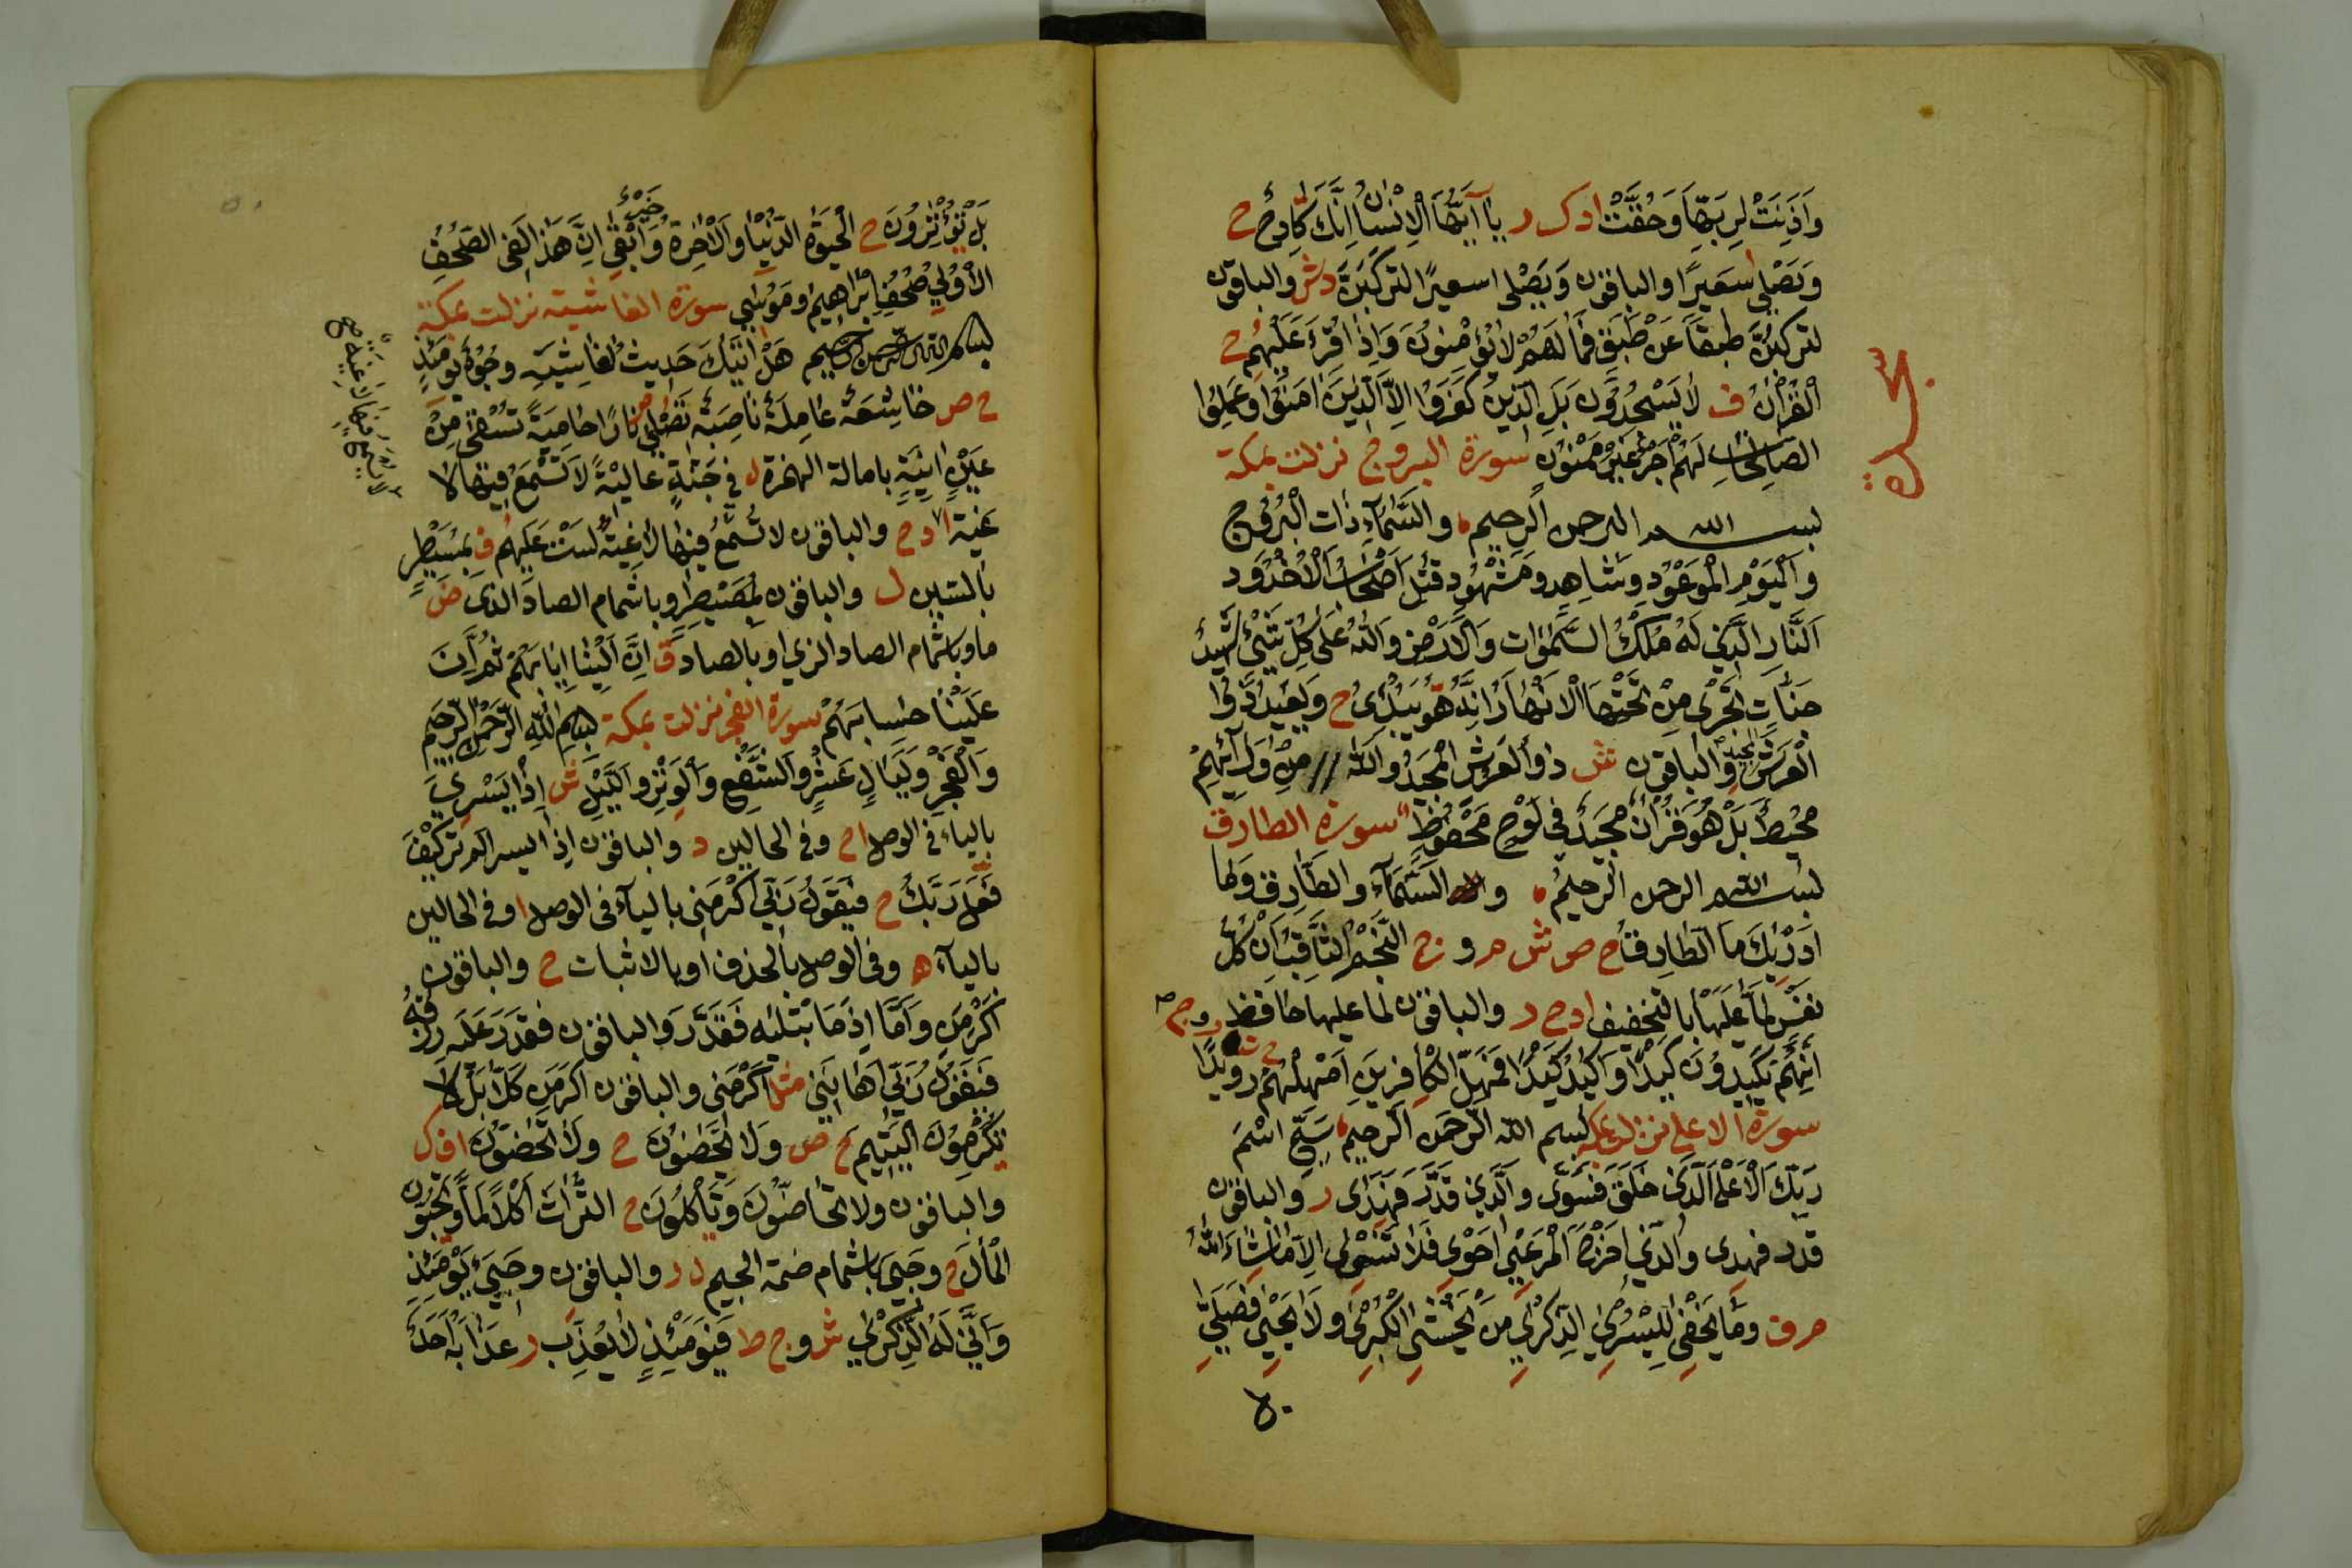 وَاَذِنَتْ لِرَبِّهَا وَحُقَّتْ ا د ك ر يَا اَيُّهَا الْاِنْسَانُ اِنَّكَ كَادِحٌ ح
وَيَصْلَى سَعِيرًا والباقون وَيُصَلَّى سعيرًا لتركَبَنَّ د ش والباقون
لتركبُنَّ طبقًا عَنْ طَبَقٍ فَمَا لَهُمْ لَا يُؤْمِنُونَ وَاِذَا قُرِءَ عَلَيْهِمُ ح
الْقُرْاٰنُ ف لَا يَسْجُدُونَ بَلِ الَّذِينَ كَفَرُوا اِلَّا الَّذِينَ اٰمَنُوا وَعَمِلُوا
الصَّالِحَاتِ لَهُمْ اَجْرٌ غَيْرُ مَمْنُونٍ سورة البروج نزلت بمكة
بسم الله الرحمن الرحيم والسَّمَاءِ ذَاتِ الْبُرُوجِ
وَالْيَوْمِ الْمَوْعُودِ وَشَاهِدٍ وَمَشْهُودٍ قُتِلَ اَصْحَابُ الْاُخْدُودِ
اَلنَّارِ الَّذِي لَهُ مُلْكُ السَّمٰوَاتِ وَالْاَرْضِ وَاللهُ عَلَى كُلِّ شَيْءٍ شَهِيدٌ
جَنَّاتٌ تَجْرِي مِنْ تَحْتِهَا الْاَنْهَارُ اِنَّهُ هُوَ يُبْدِئُ ح وَيُعِيدُ ذُوا
الْعَرْشِ المجيدِ والباقون ش ذُو الْعَرْشِ الْمَجِيدُ وَاللهُ // مِنْ وَرَائِهِمْ
مُحِيطٌ بَلْ هُوَ قُرْاٰنٌ مَجِيدٌ فِي لَوْحٍ مَحْفُوظٍ سورة الطارق
بسم الله الرحمن الرحيم والسَّمَاءِ والطَّارِقِ وَمَا
اَدْرٰيكَ مَا الطَّارِقُ ح ص ش م و ج النَّجْمُ الثَّاقِبُ اِنْ كُلُّ
نَفْسٍ لَمَا عَلَيْهَا بالتخفيف ا د ح ر والباقون لما عليها حافظ
اِنَّهُمْ يَكِيدُونَ كَيْدًا وَاَكِيدُ كَيْدًا فَمَهِّلِ الْكَافِرِينَ اَمْهِلْهُمْ رُوَيْدًا
سورة الاعلى نزلت بمكة بسم الله الرَّحمن الرحيم سَبِّحِ اسْمَ
رَبِّكَ الْاَعْلَى الَّذِي خَلَقَ فَسَوّٰى وَالَّذِي قَدَرَ فَهَدٰى ر والباقون
قدّر فهدى والَّذِي اَخْرَجَ الْمَرْعٰى اَحْوٰى فَلَا تَنْسٰى اِلَّا مَا شَاءَ اللهُ
م ف وَمَا يَخْفٰى لِلْيُسْرٰى الذِّكْرٰى مَنْ يَخْشٰى الْكُبْرٰى وَلَا يَحْيٰى فَصَلّٰى
سجده
بَلْ يُؤْثِرُونَ ح الْحَيٰوةَ الدُّنْيَا وَالْاٰخِرَةُ خَيْرٌ وَاَبْقٰى اِنَّ هٰذَا لَفِي الصُّحُفِ
الْاُولٰى صُحُفِ اِبْرٰاهِيمَ وَمُوسٰى سورة الغاشية نزلت بمكة
بسم الله الرحمن الرحيم هَلْ اَتٰيكَ حَدِيثُ الْغَاشِيَةِ وُجُوهٌ يَوْمَئِذٍ
ح ص خَاشِعَةٌ عَامِلَةٌ نَاصِبَةٌ تُصْلٰى نَارًا حَامِيَةً تُسْقٰى مِنْ
عَيْنٍ اٰنِيَةٍ بامالة الهمزة ل فِي جَنَّةٍ عَالِيَةٍ لَا تُسْمَعُ فِيهَا لَا
غِيَةٌ ا د ح والباقون لا تَسْمَعُ فِيهَا لَاغِيَةً لَسْتَ عَلَيْهِمْ ف بِمُسَيْطِرٍ
بالسين ل والباقون بِمُصَيْطِرٍ وباشمام الصاد الزى ض
ما وباشمام الصاد الزي او بالصاد ق اِنَّ اِلَيْنَا اِيَابَهُمْ ثُمَّ اِنَّ
عَلَيْنَا حِسَابَهُمْ سورة الفجر نزلت بمكة بسم الله الرَّحْمٰنِ الرَّحِيمِ
وَالْفَجْرِ وَلَيَالٍ عَشْرٍ وَالشَّفْعِ وَالْوِتْرِ وَاللَّيْلِ ش اِذَا يَسْرِي
بالياء في الوصل ا ح وفي الحالين د والباقون اِذَا يسر الم تر كَيْفَ
فَعَلَ رَبُّكَ ح فَيَقُولُ رَبِّي اَكْرَمَنِي بالياء في الوصل ا وفي الحالين
بالياء ه وفي الوصل بالحذف او بالاثبات ح والباقون
اَكْرَمَنِ وَاَمَّا اِذَا مَا ابْتَلٰيهُ فَقَدَّرَ ك والباقون فقَدَرَ عَلَيْهِ رِزْقَهُ
فَيَقُولُ رَبِّي اَهَانَنِي مثل اَكْرَمَنِي والباقون اكرمن كَلَّا بَلْ لَا
يُكْرِمُونَ الْيَتِيمَ ح ض وَلَا يَحُضُّونَ ح ولا تَحُضُّونَ ا ف ك
والباقون ولا تَحَاضُّونَ وَيَاْكُلُونَ ح التُّرَاثَ اَكْلًا لَمًّا وَيُحِبُّونَ
الْمَالَ ح وَجِيءَ باشمام ضمة الجيم ل ر والباقون وَجِيءَ يَوْمَئِذٍ
وَاَنّٰى لَهُ الذِّكْرٰى ش و ج ط فَيَوْمَئِذٍ لَا يُعَذَّبُ ر عَذَابَهُ اَحَدٌ